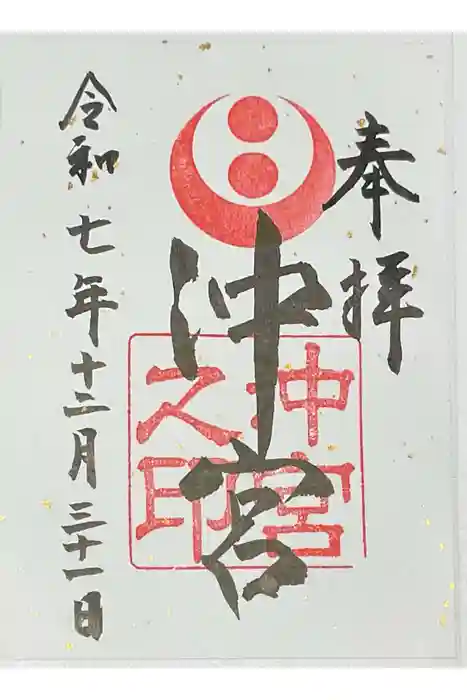 奉拝
沖宮
沖宮
之印
令和七年十二月三十一日